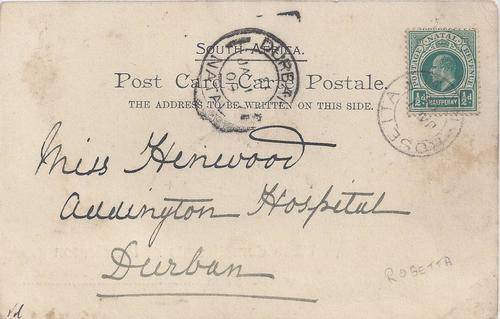 SOUTH AFRICA.
Post Card - Carte Postale.
THE ADDRESS TO BE WRITTEN ON THIS SIDE.
POSTAGE NATAL REVENUE
½d HALFPENNY ½d
DURBAN
NATAL
ROSETTA
Miss Henwood
Addington Hospital
Durban
ROSETTA